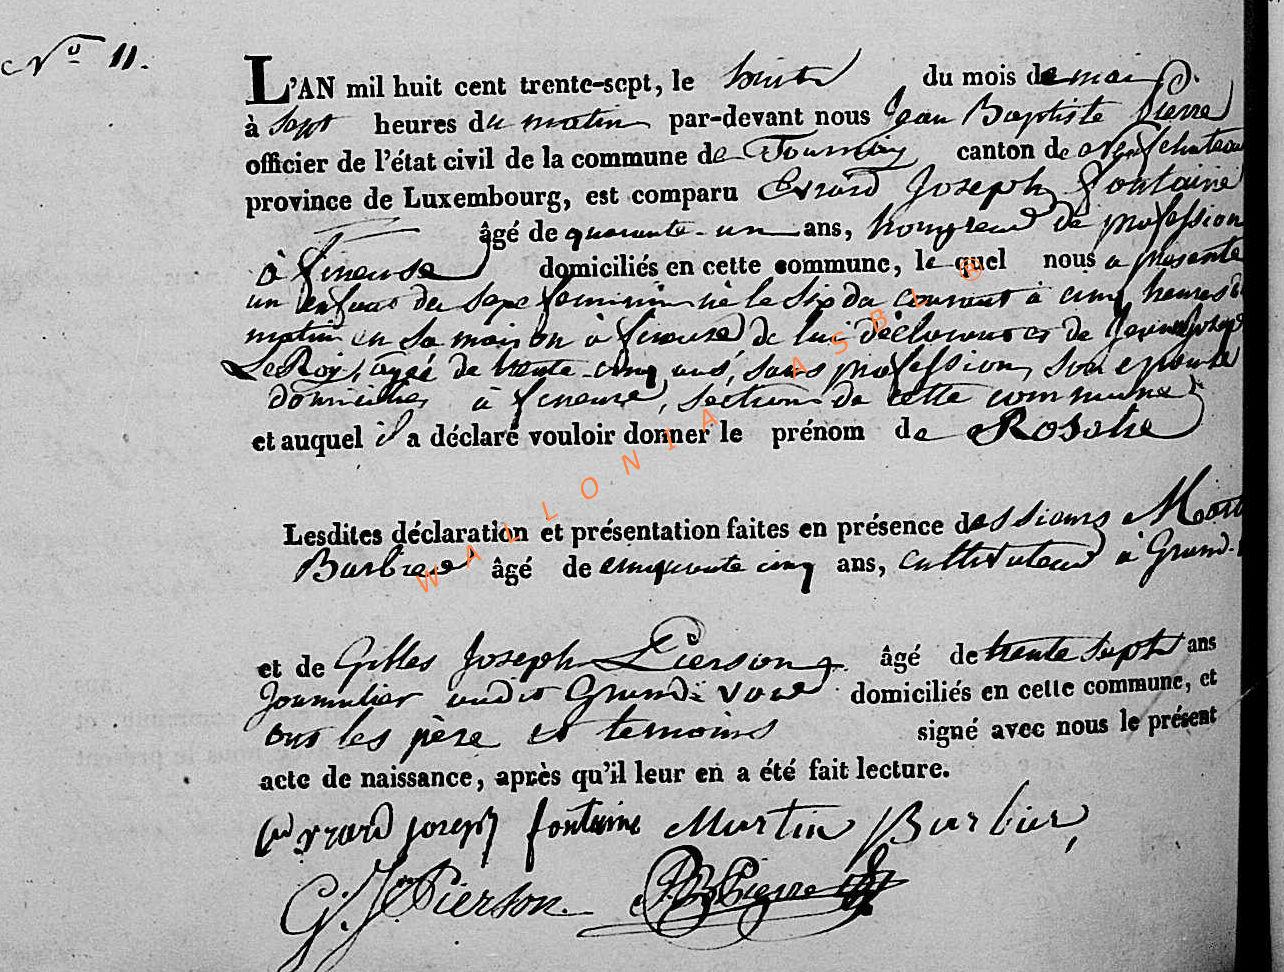 No 11.
L'AN mil huit cent trente-sept, le huit du mois de mai
à Sept heures du matin par-devant nous Jean Baptiste Pierre
officier de l'état civil de la commune de Tournay canton de Neufchateau
province de Luxembourg, est comparu Evrard Joseph fontaine
âgé de quarante-un ans, hongreur de profession
à fineuse domiciliés en cette commune, le quel nous a présenté
un enfant du sexe feminin né le Six du courant à cinq heures du
matin en sa maison à fineuse de lui déclarant et de Jeanne Joseph
Le Roy, agée de trente-cinq ans, sans profession, son epouse
domiciliée à fineuse, section de cette commune
et auquel il a déclaré vouloir donner le prénom de Rosalie
Lesdites déclaration et présentation faites en présence des sieurs Mart
Barbier âgé de cinquante cinq ans, cultivateur à Grand-
et de Gilles Joseph Pierson âgé de trente Sept ans
Journalier audit Grand-voir domiciliés en cette commune, et
ont les père et temoins signé avec nous le présent
acte de naissance, après qu'il leur en a été fait lecture.
Evrard joseph fontaine Martin Barbier
G. J. Pierson JB Pierre
WALLONIA ASBL ®